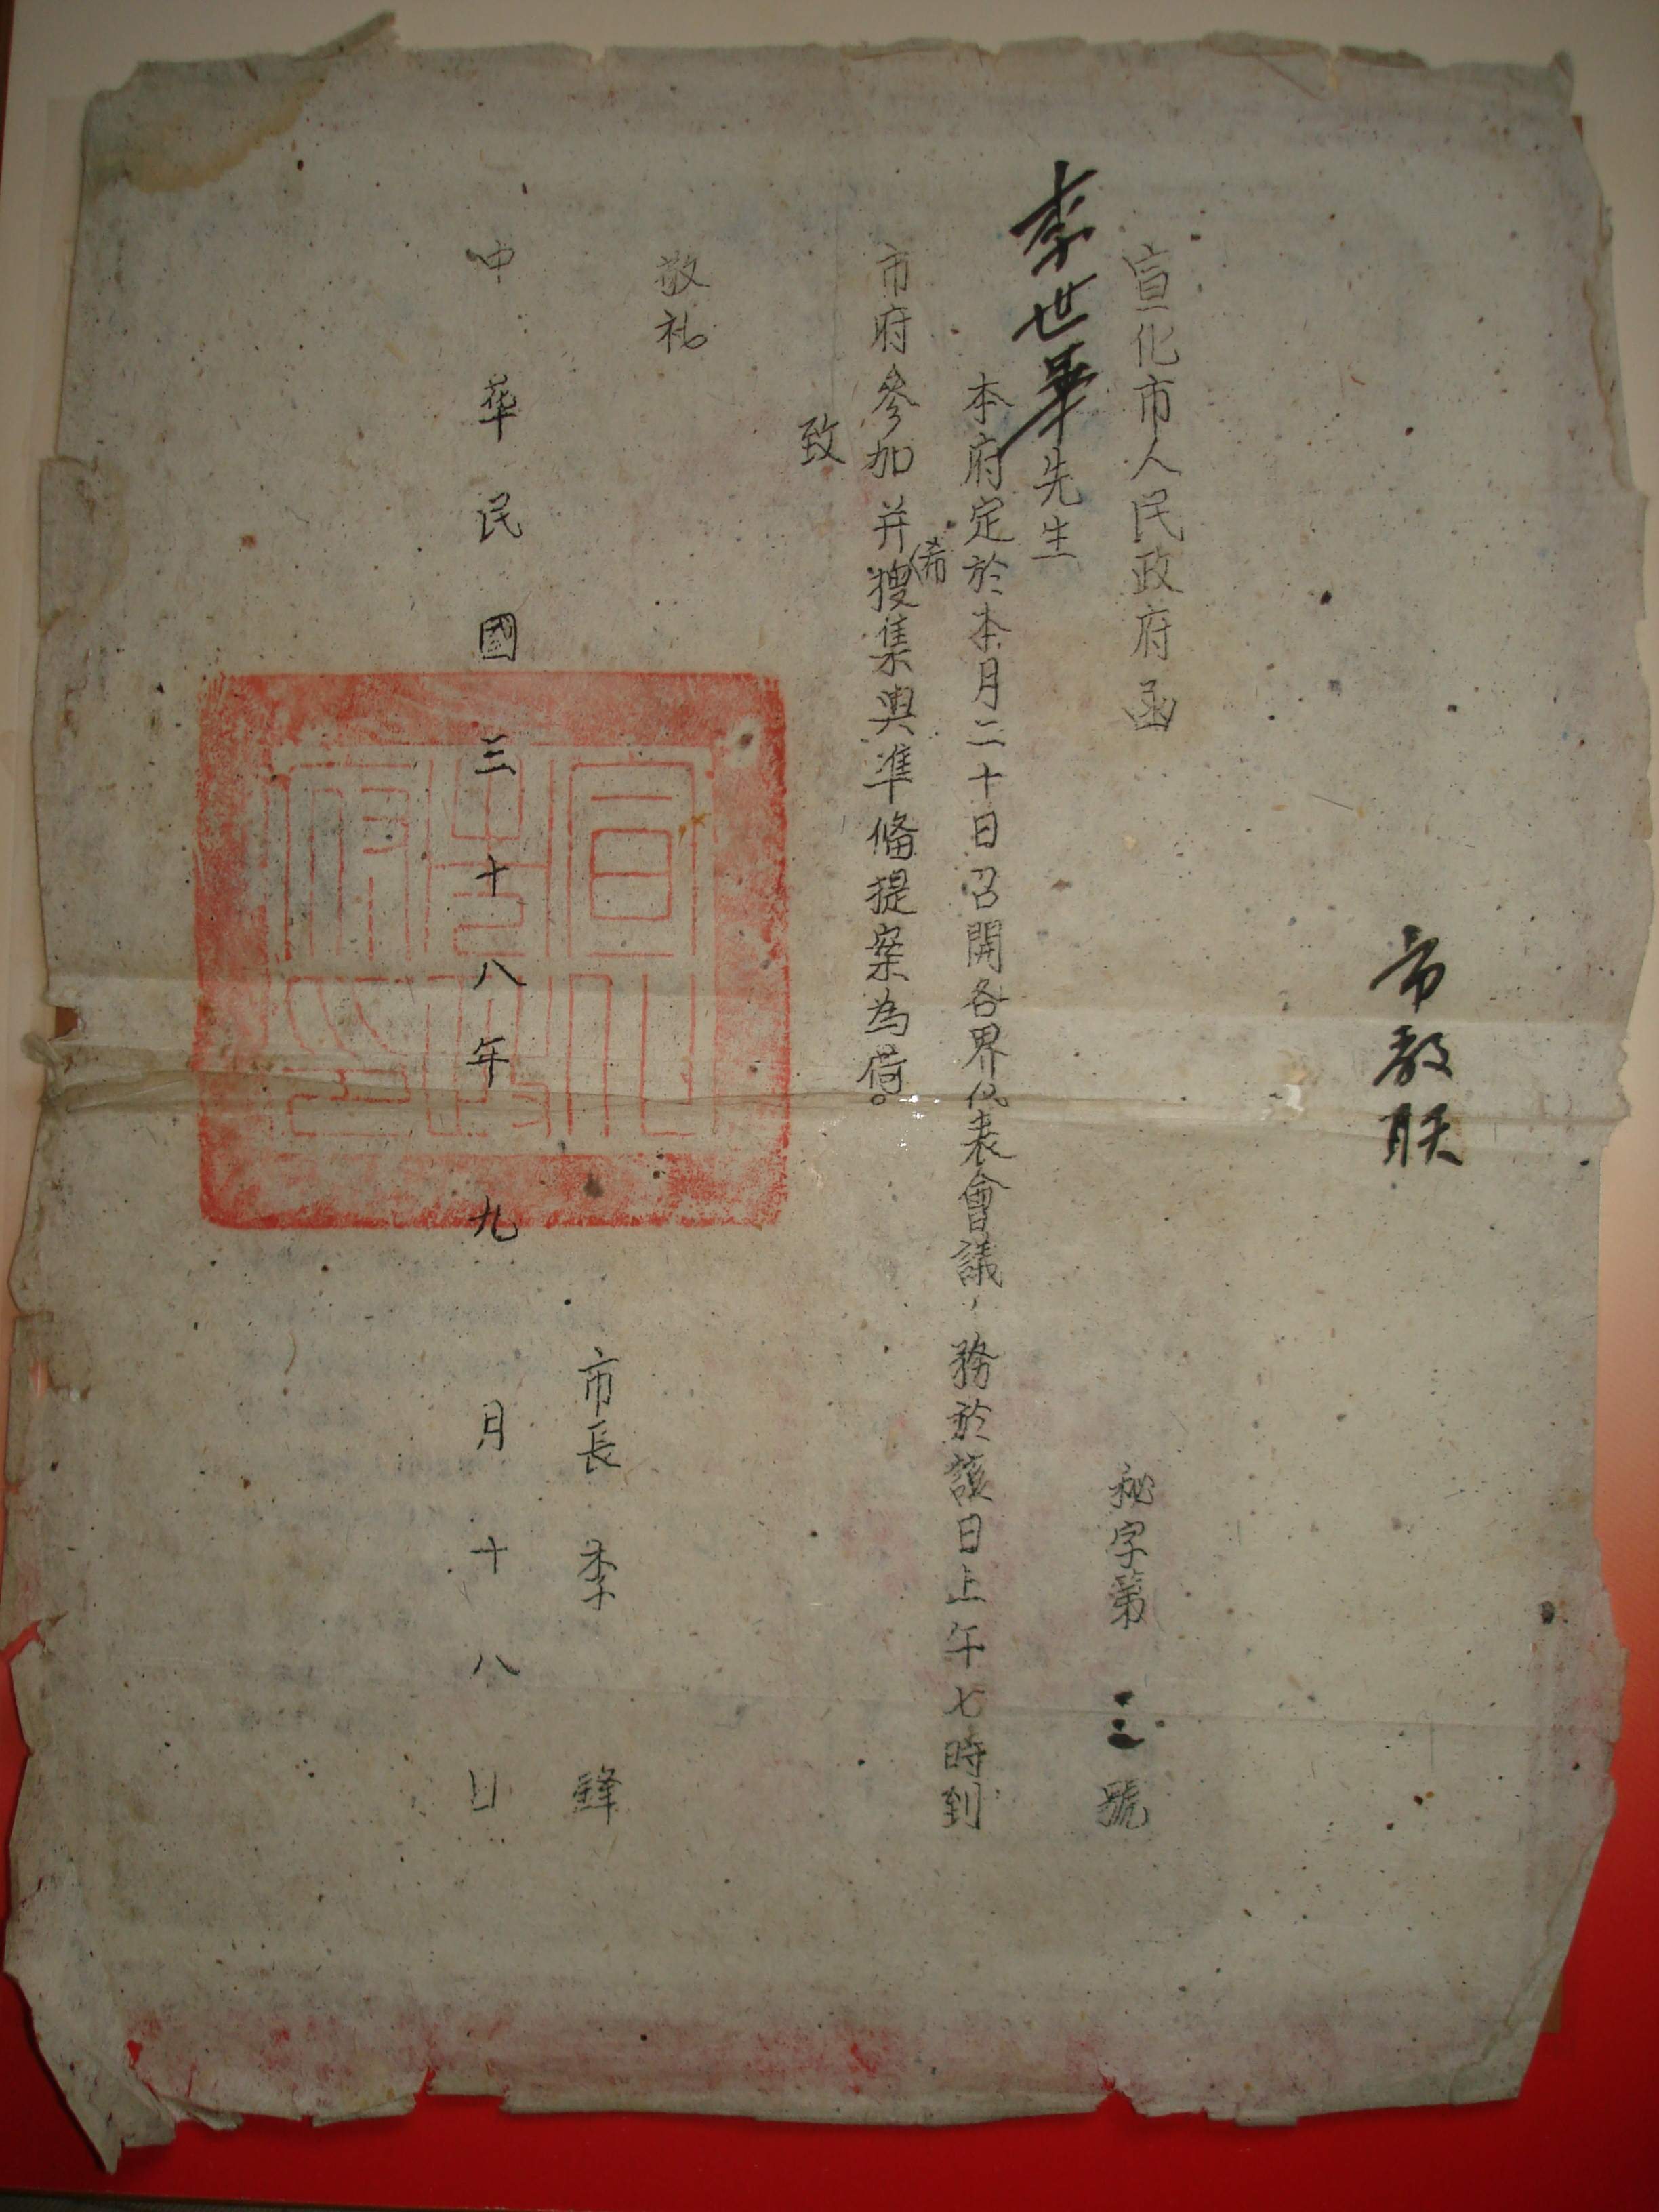 市教联
宣化市人民政府函
秘字第三號
李世華先生
本府定於本月二十日召開各界代表會議，務於該日上午七時到
市府參加并
希
搜集與準備提案為荷。
致
敬礼
市長 李鋒
中華民國三十八年九月十八日
宣化市政府印